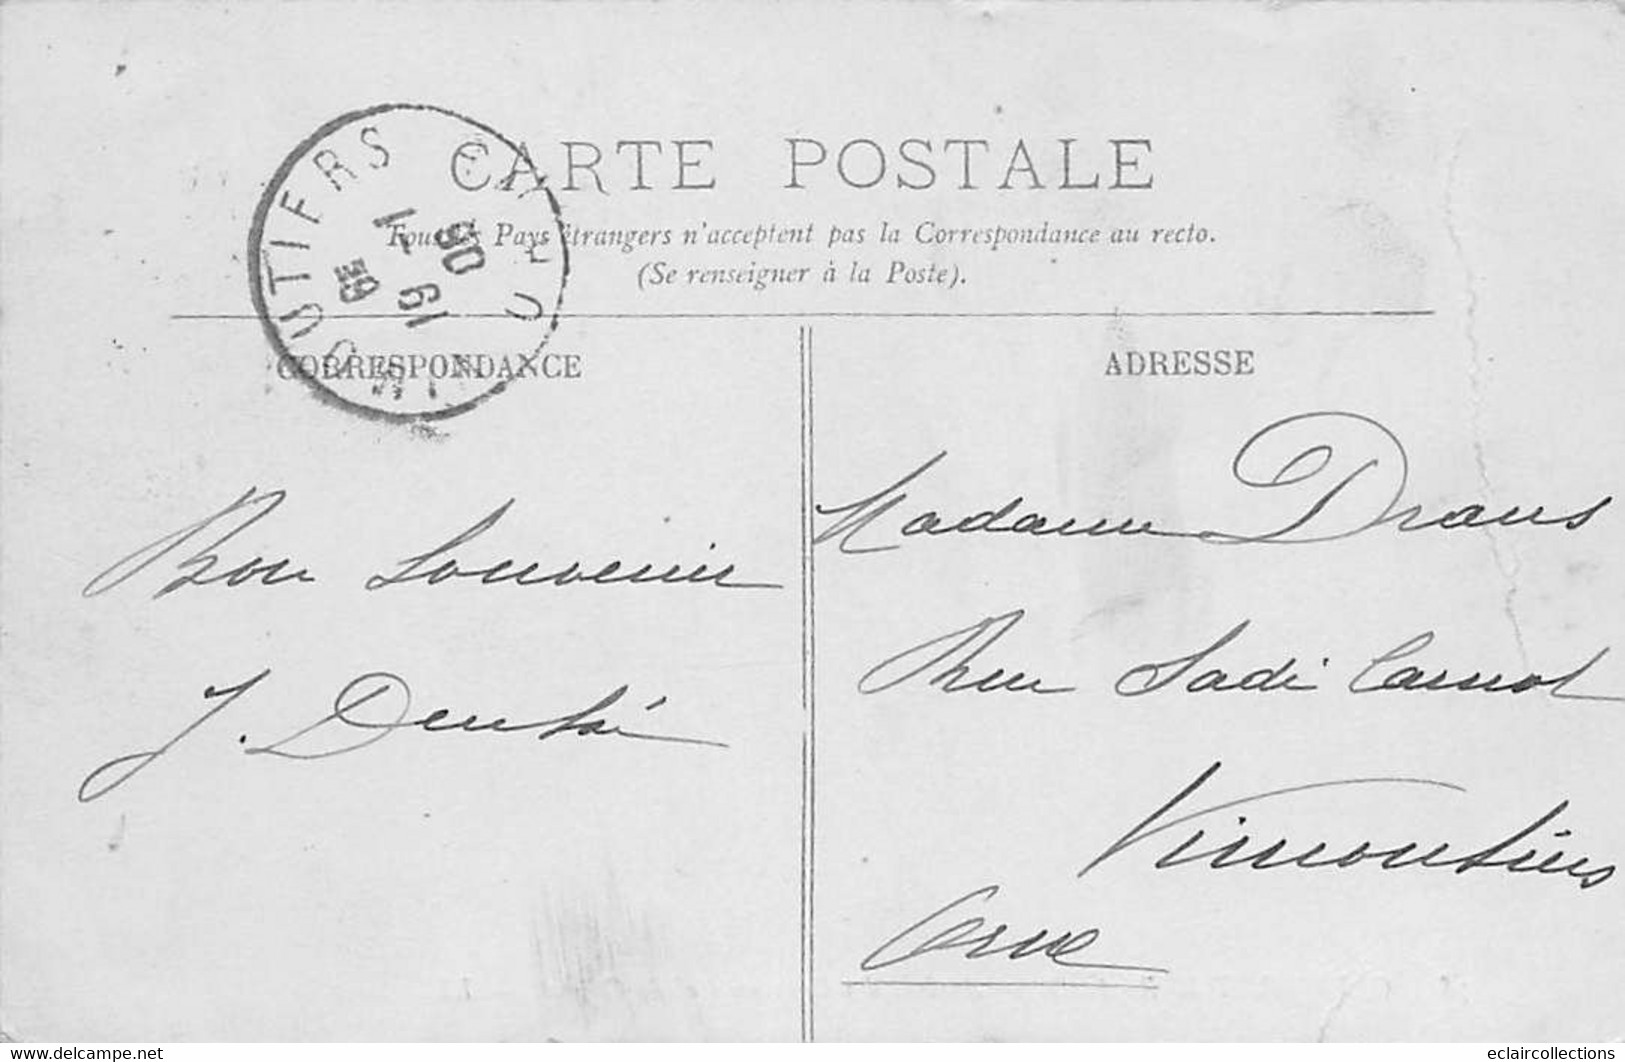 CARTE POSTALE
Tous les Pays étrangers n'acceptent pas la Correspondance au recto.
(Se renseigner à la Poste).
CORRESPONDANCE
ADRESSE
Bon Souvenir
J.
Madame Draus
Rue Sadi Carnot
Vimoutiers
Orne
eclaircollections